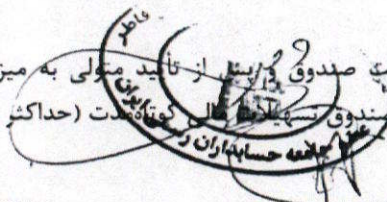 صندوق و پس از تأیید متولی به میز
صندوق تسهیلات مالی کوتاه‌مدت (حداکثر
فاطر
عضو جامعه حسابداران رسمی ایران